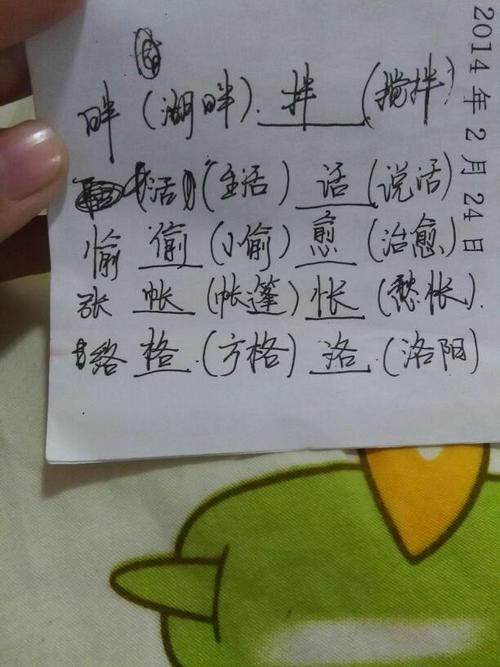 2014年2月24日
畔(湖畔). 拌 (搅拌)
(活)(生活) 话 (说话)
愉 偷 (小偷) 愈 (治愈)
张 帐 (帐篷) 怅 (愁怅).
络 格.(方格) 洛.(洛阳)